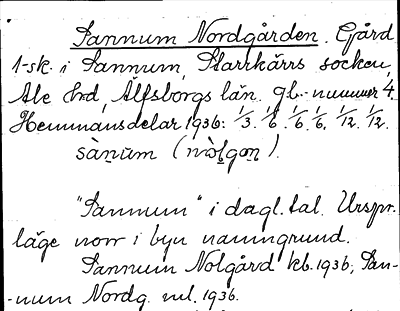 Sannum Nordgården. Gård
1-sk. i Sannum, Starrkärrs socken,
Ale hrd, Älfsborgs län. gb.-nummer 4.
Hemmansdelar 1936: 1/3. 1/6. 1/6. 1/6. 1/12. 1/12.
sànùm (nòlgon).
"Sannum" i dagl. tal. Urspr.
läge norr i byn namngrund.
Sannum Nolgård kb. 1936; San-
-num Nordg. ml. 1936.